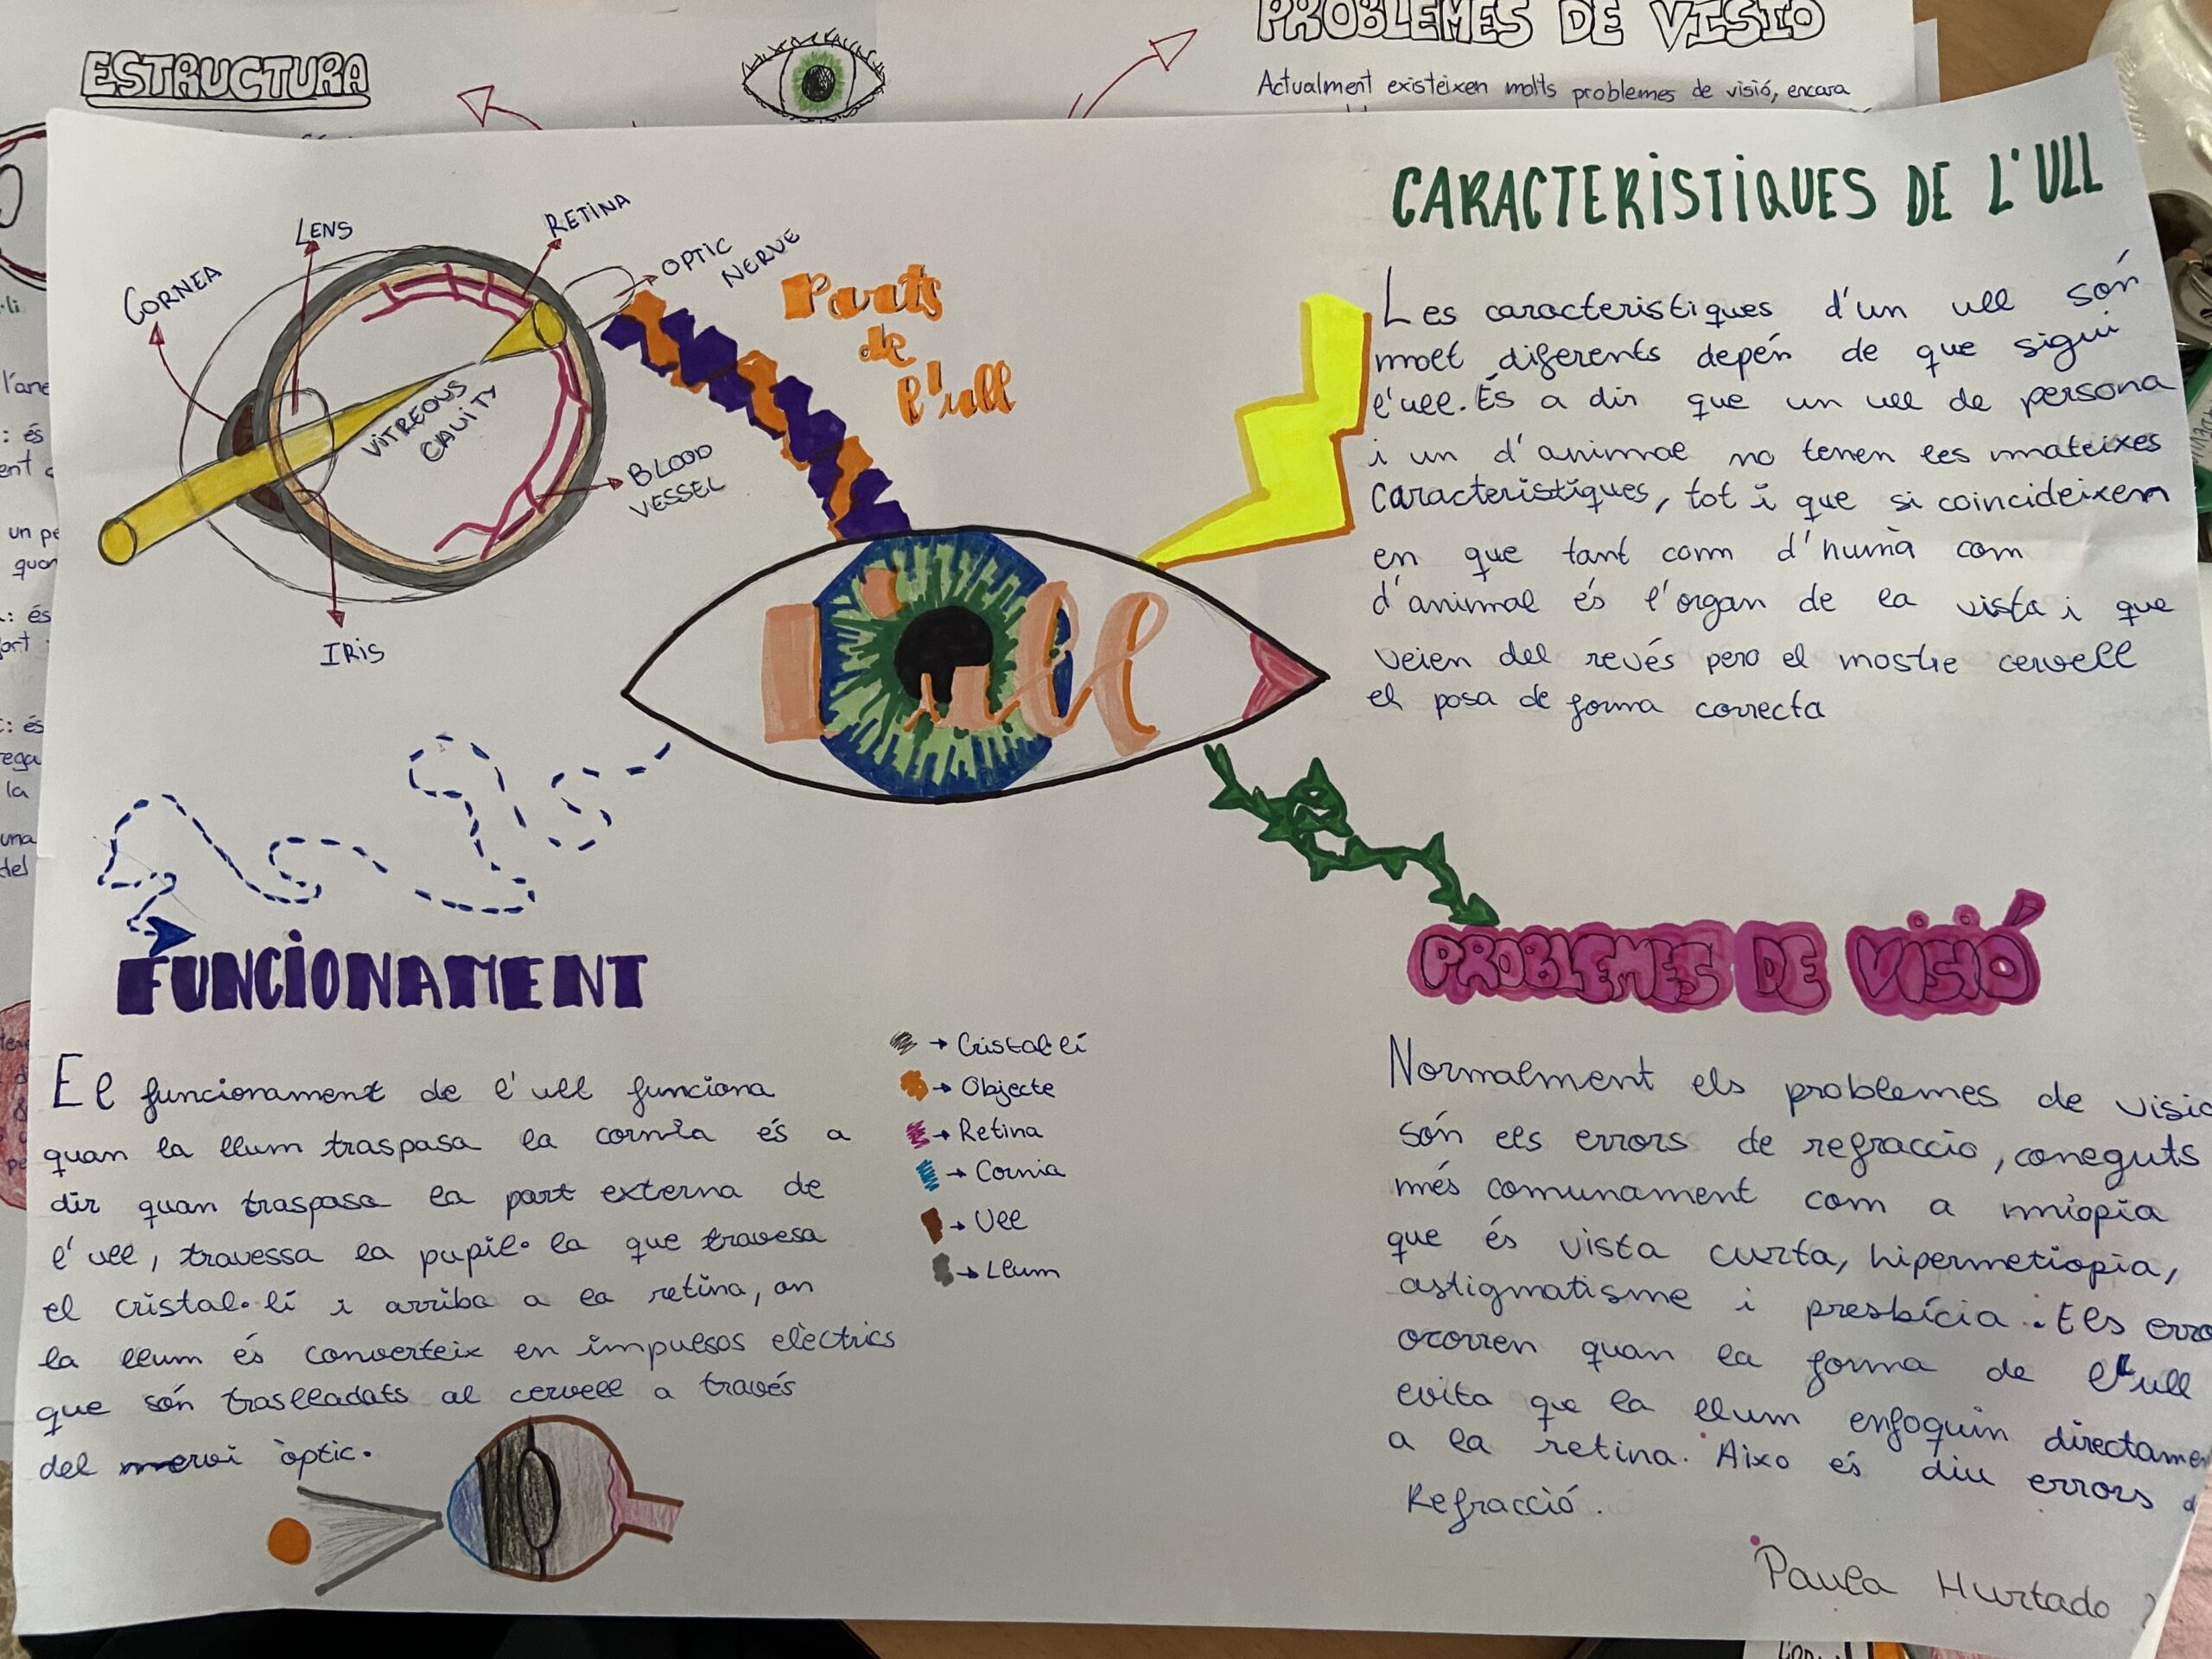 ESTRUCTURA
PROBLEMES DE VISIÓ
Actualment existeixen molts problemes de visió, encara
CORNEA
LENS
RETINA
OPTIC
NERVE
VITREOUS
CAVITY
BLOOD
VESSEL
IRIS
Parts
de
l'ull
l'ull
CARACTERISTIQUES DE L'ULL
Les caracteristiques d'un ull són
molt diferents depén de que sigui
l'ull. És a dir que un ull de persona
i un d'animal no tenen les mateixes
caracteristiques, tot i que si coincideixen
en que tant com d'humà com
d'animal és l'organ de la vista i que
veien del revés pero el mostre cervell
el posa de forma correcta
FUNCIONAMENT
El funcionament de l'ull funciona
quan la llum traspasa la cornia és a
dir quan traspasa la part externa de
l'ull, travessa la pupil·la que travesa
el cristal·lí i arriba a la retina, on
la llum és converteix en impulsos elèctrics
que són traslladats al cervell a través
del nervi òptic.
→ Cristal·lí
→ Objecte
→ Retina
→ Cornia
→ Ull
→ Llum
PROBLEMES DE VISIÓ
Normalment els problemes de visio
són els errors de refraccio, coneguts
més comunament com a miopia
que és vista curta, hipermetiopia,
astigmatisme i presbícia. Els erro
ocorren quan la forma de l'ull
evita que la llum enfoquin directamen
a la retina. Aixo és diu errors d
Refracció.
Paula Hurtado